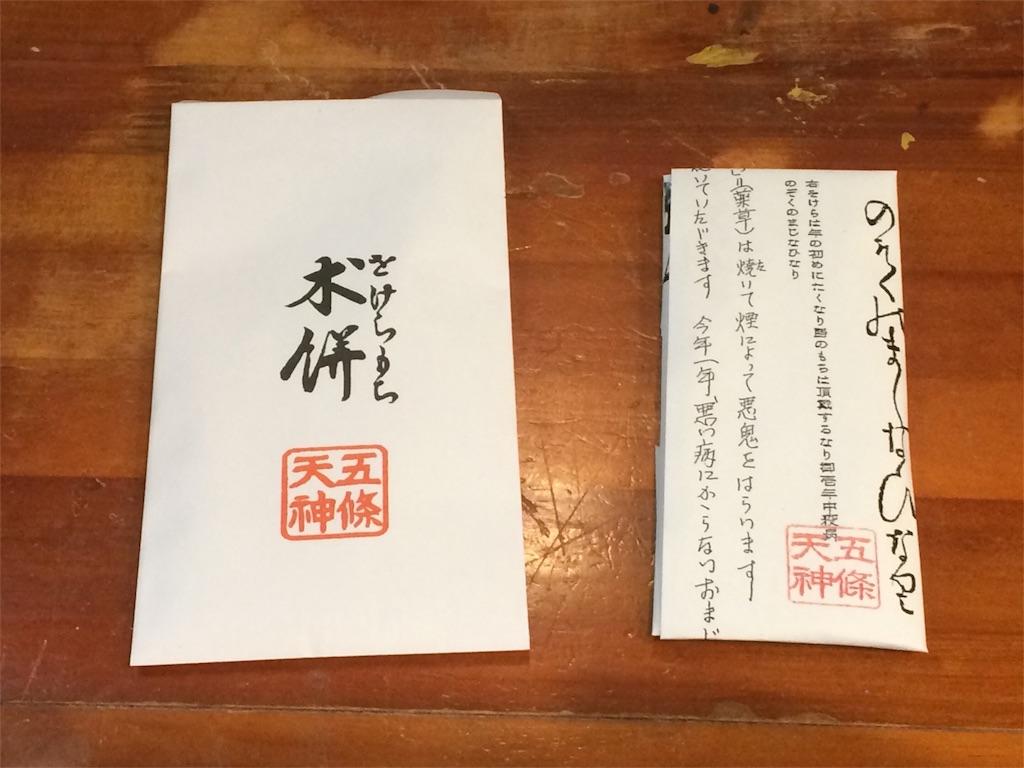 をけらもち
朮餅
五條
天神
のそくのましなひなり
右をけらは年の初めにたくなり のもちは頂戴するなり御壱年中疫病
のぞくのまじなひなり
(薬草)は焼いて煙によって悪鬼をはらいます
た
いていただきます 今年一年、悪い病にかからないおまじ
五條
天神